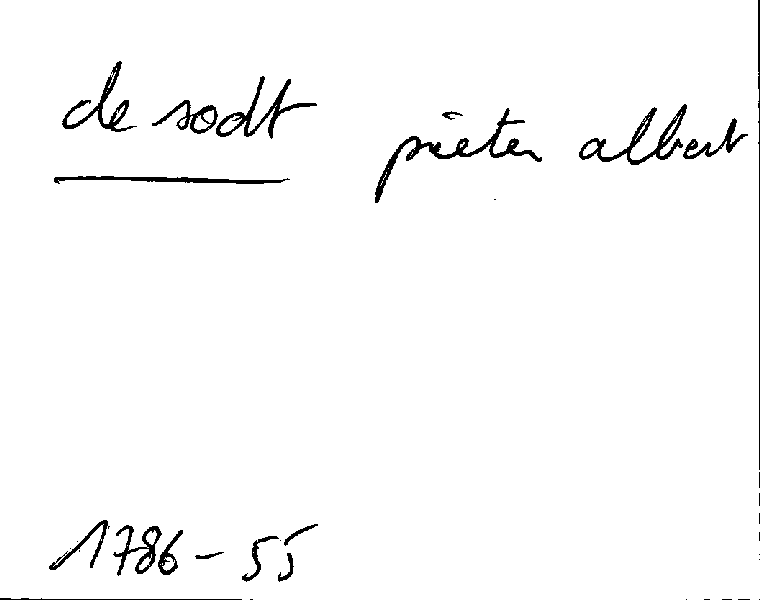 de sodt pieter albert
1786-55